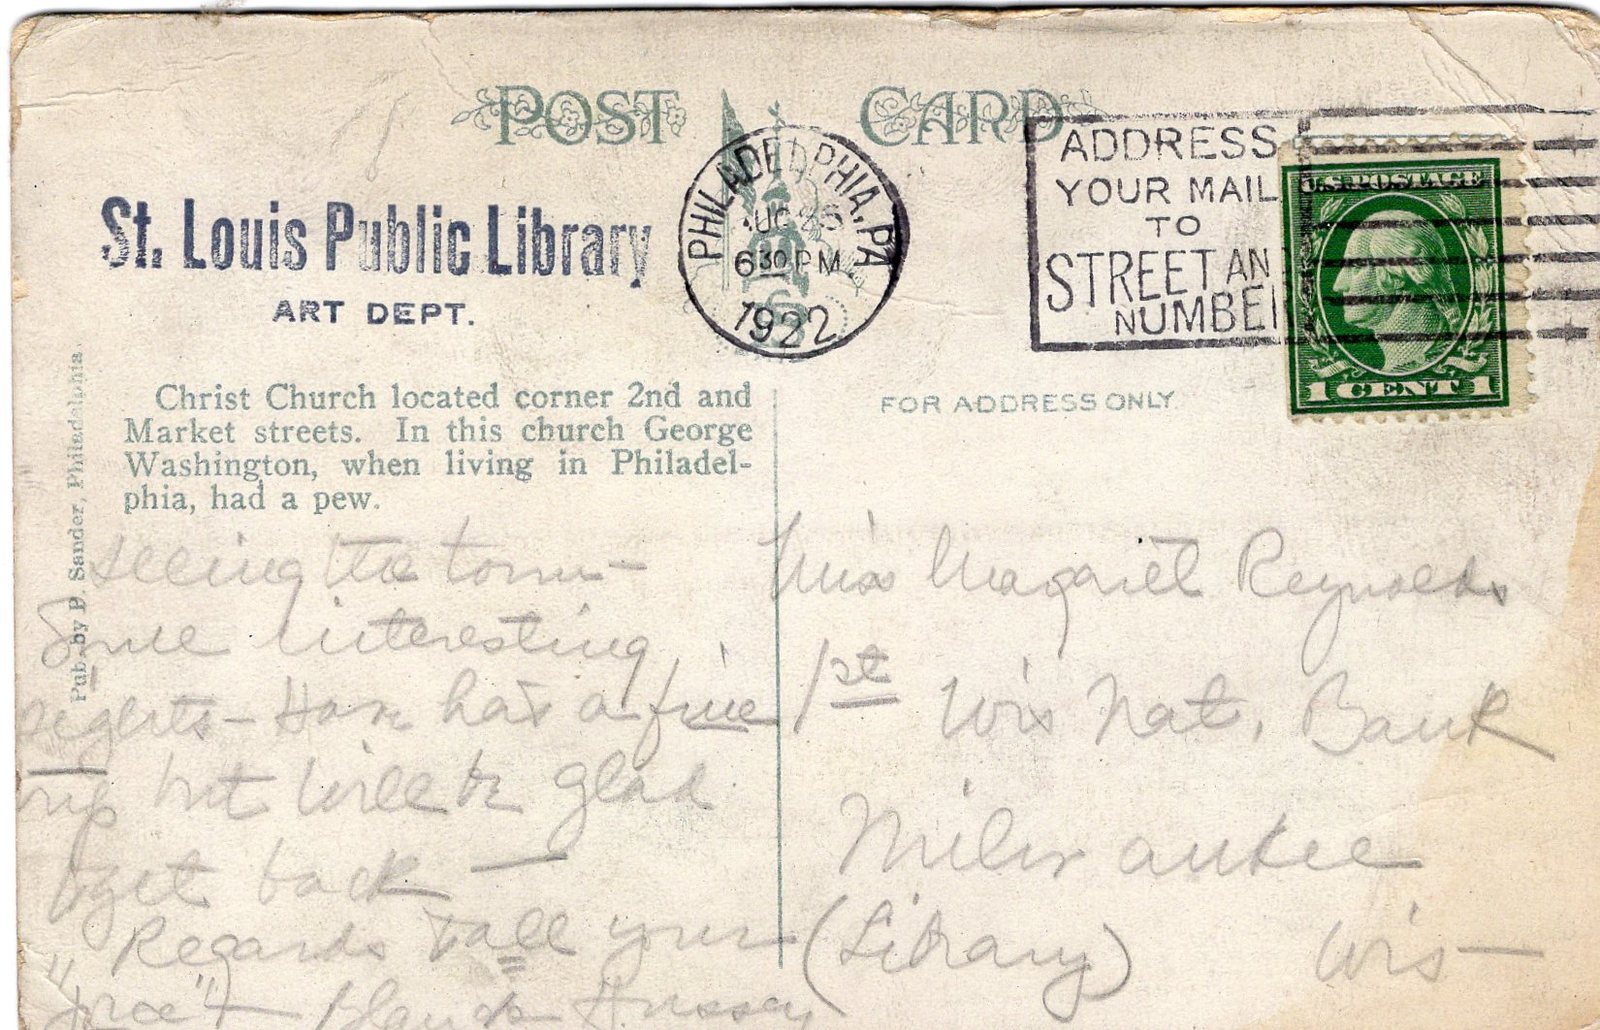 POST CARD
PHILADELPHIA, PA
AUG 26
6 30 PM
1922
ADDRESS
YOUR MAIL
TO
STREET AN
NUMBE
U.S. POSTAGE
1 CENT 1
St. Louis Public Library
ART DEPT.
Christ Church located corner 2nd and
Market streets. In this church George
Washington, when living in Philadel-
phia, had a pew.
FOR ADDRESS ONLY.
Pub. by P. Sander, Philadelphia
seeing the town —
Some interesting
sights — Have had a fine
trip but will be glad
to get back —
Regards to all your
Blanche Hussey
Miss Margaret Reynolds
1st Wis Nat. Bank
Milwaukee
(Library) Wis —